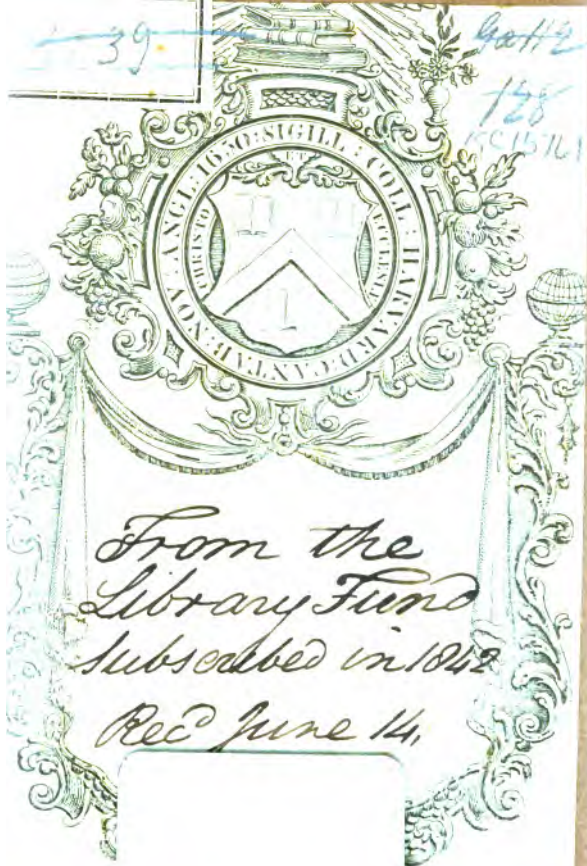 39
128
SIGILL : COLL : HARVARD : CANTAB : NOV : ANGL : 1650 :
CHRISTO
ET
ECCLESIÆ
From the
Library Fund
subscribed in 1842
Rec'd June 14,